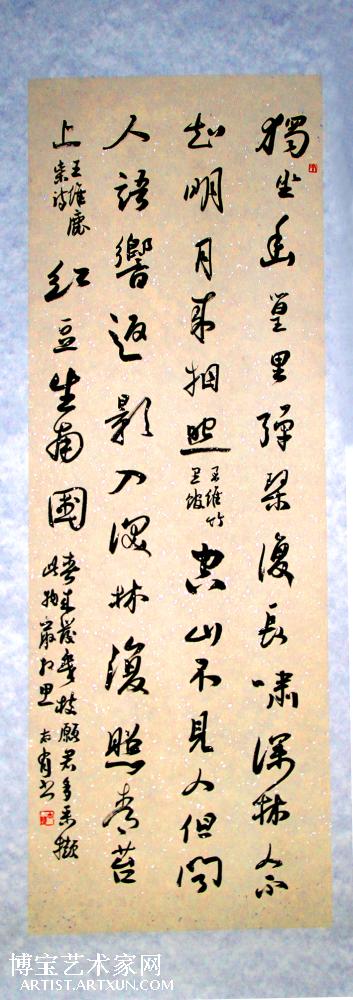 獨坐幽篁里彈琴復長嘯深林人不
知明月來相照
王維竹
里館
空山不見人但聞
人語響返影入深林復照青苔
上
王維鹿
柴詩
紅豆生南國
春來發幾枝願君多采擷
此物最相思
博宝艺术家网
ARTIST.ARTXUN.COM